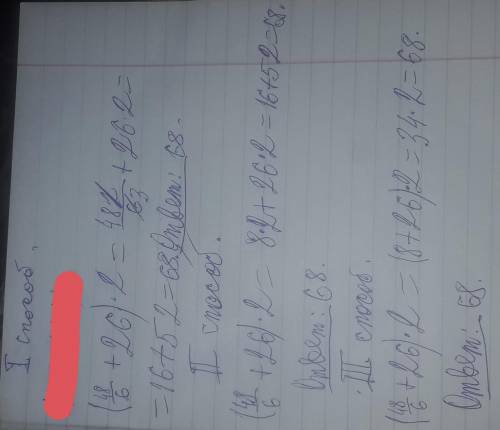 I способ.
(48/6 + 26) · 2 = 48·2/6 3 + 26·2 =
= 16+52=68. Ответ: 68.
II способ.
(48/6 + 26) · 2 = 8·2 + 26·2 = 16+52=68.
Ответ: 68.
III способ.
(48/6 + 26) · 2 = (8+26)·2 = 34·2 = 68.
Ответ: 68.